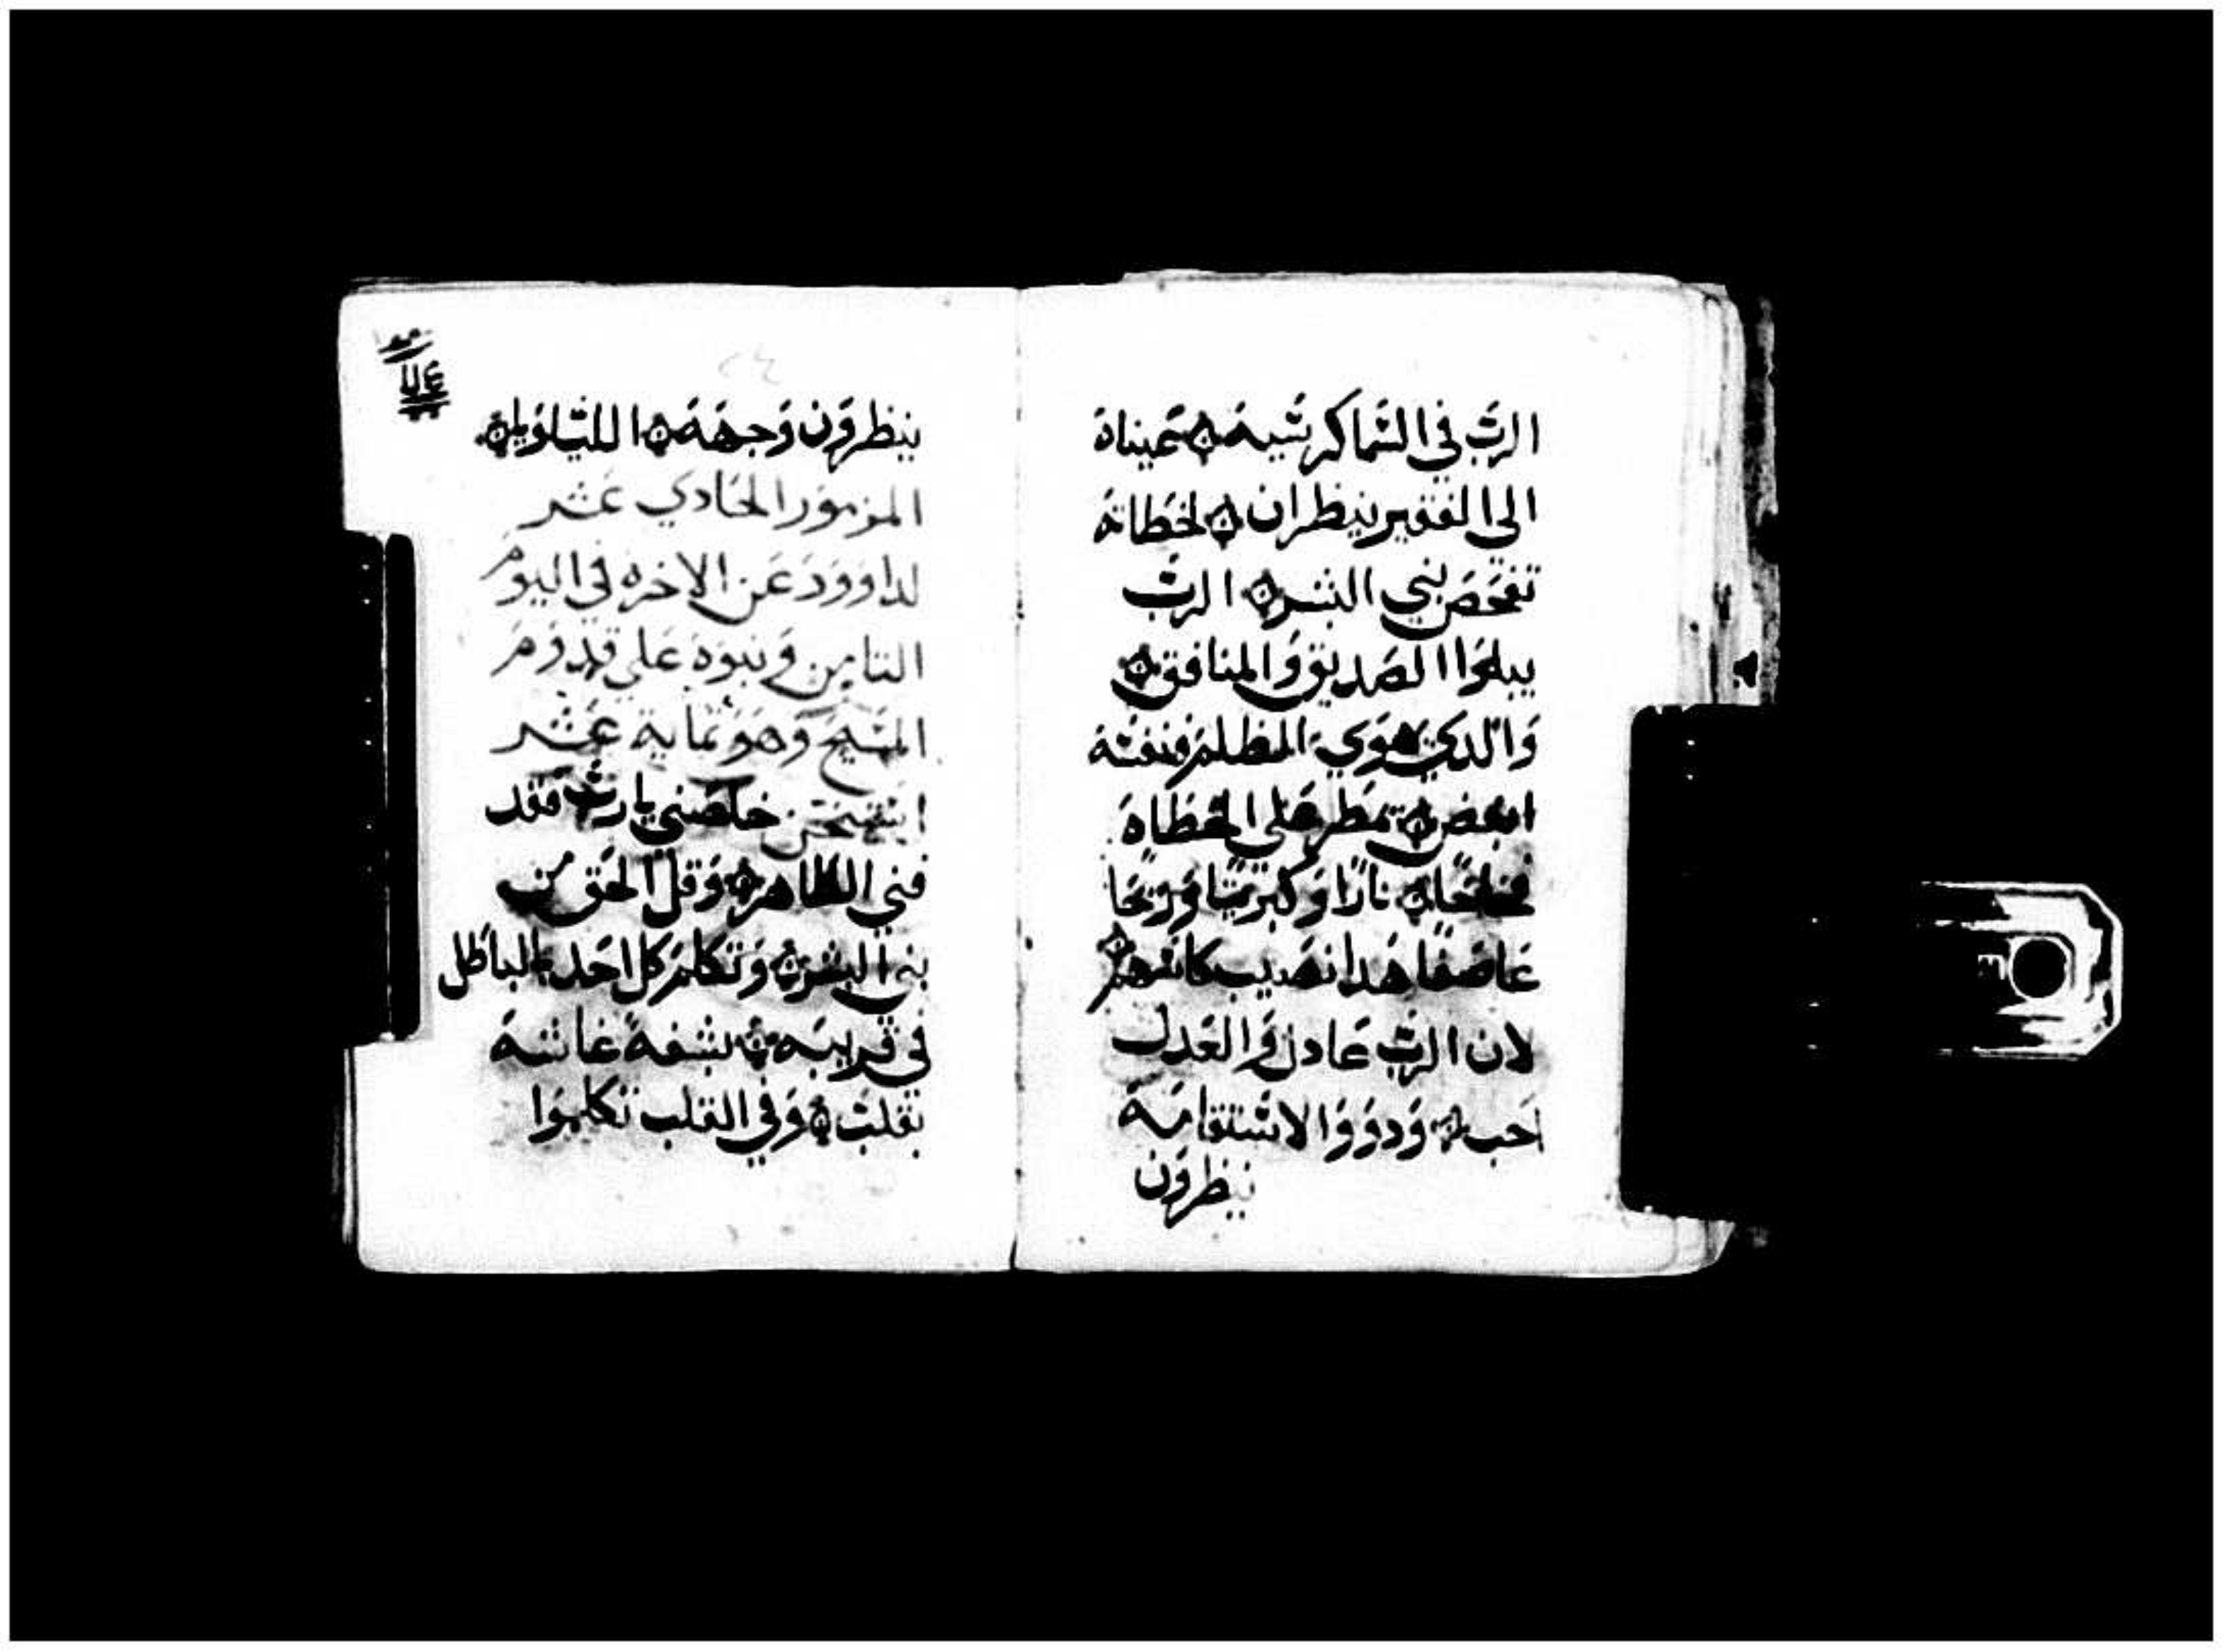 الرب في السما كرسيه عيناه
الى الفقير ينظران لحظاته
تفحص بني البشر الرب
يبلوا الصديق والمنافق
والدي هوي الظلم فنفسه
ابغض تمطر على الخطاه
فخاخا نارا وكبريتا وريحا
عاصفا هدا نصيب كاسهم
لان الرب عادل والعدل
احب ودووا الاستقامه
ينظرون
ينظرون وجهه الليلويا
المزمور الحادي عشر
لداوود عن الاخره في اليوم
التامن ونبوه على قدوم
المسيح وهو تمانية عشر
خلصني يارب فقد
فني الطاهر وقل الحق من
بني البشر وتكلم كل احد بالباطل
في قريبه بشفه غاشه
بقلب وفي القلب تكلموا